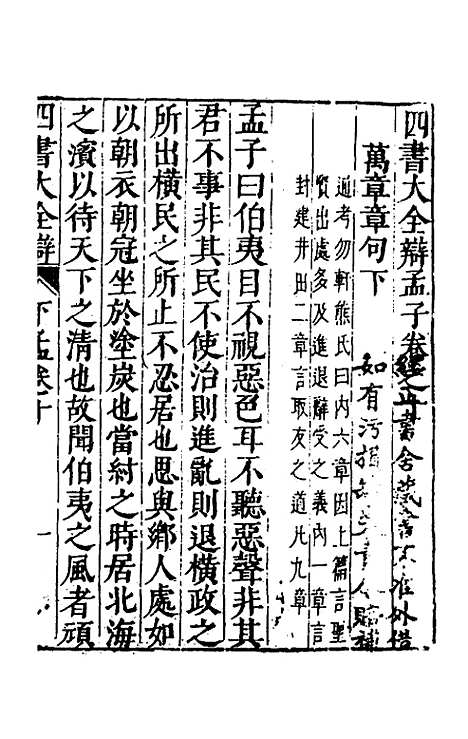 四書大全辯孟子卷之十
書舍藏書不准外借
萬章章句下
如有污損
賠補
通考勿軒熊氏曰內六章因上篇言聖
賢出處多及進退辭受之義內一章言
封建井田二章言取友之道凡九章
孟子曰伯夷目不視惡色耳不聽惡聲非其
君不事非其民不使治則進亂則退橫政之
所出橫民之所止不忍居也思與鄉人處如
以朝衣朝冠坐於塗炭也當紂之時居北海
之濱以待天下之清也故聞伯夷之風者頑
四書大全辯 下孟卷十 一